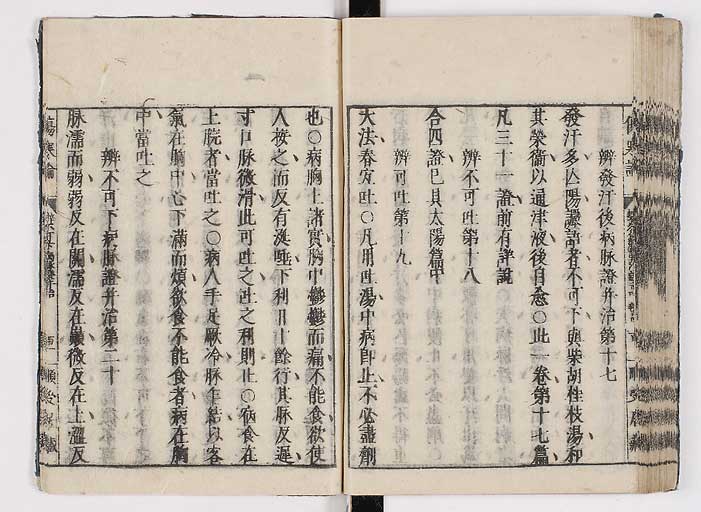 辨發汗後病脉證并治第十七
發汗多亡陽讝語者不可下與柴胡桂枝湯和
其榮衞以通津液後自愈○此一卷第十七篇
凡三十一證前有詳說
辨不可吐第十八
合四證已具太陽篇中
辨可吐第十九
大法春宜吐○凡用吐湯中病即止不必盡劑
也○病胸上諸實胸中鬱鬱而痛不能食欲使
人按之而反有涎唾下利日十餘行其脉反遲
寸口脉微滑此可吐之吐之利則止○宿食在
上脘者當吐之○病人手足厥冷脉乍結以客
氣在胸中心下滿而煩欲食不能食者病在胸
中當吐之
辨不可下病脉證并治第二十
脉濡而弱弱反在關濡反在巓微反在上澀反
傷寒論